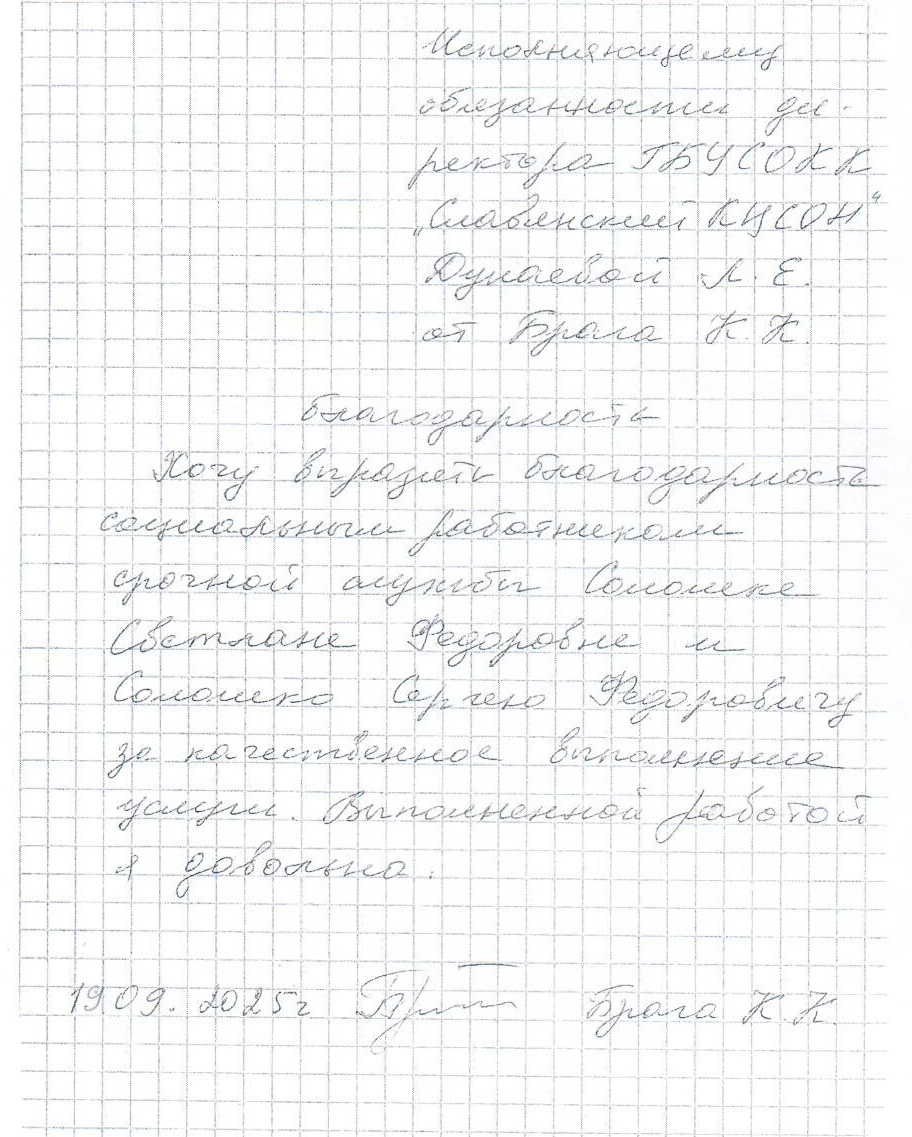 Исполняющему
обязанности ди-
ректора ГБУСОКК
„Славянский КЦСОН"
Дунаевой Л. Е.
от Брага К. К.
благодарность
Хочу выразить благодарность
социальным работникам
срочной службы Соломеке
Светлане Федоровне и
Соломеко Сергею Федоровичу
за качественное выполнение
услуги. Выполненной работой
я довольна.
19.09.2025г Брага К. К.